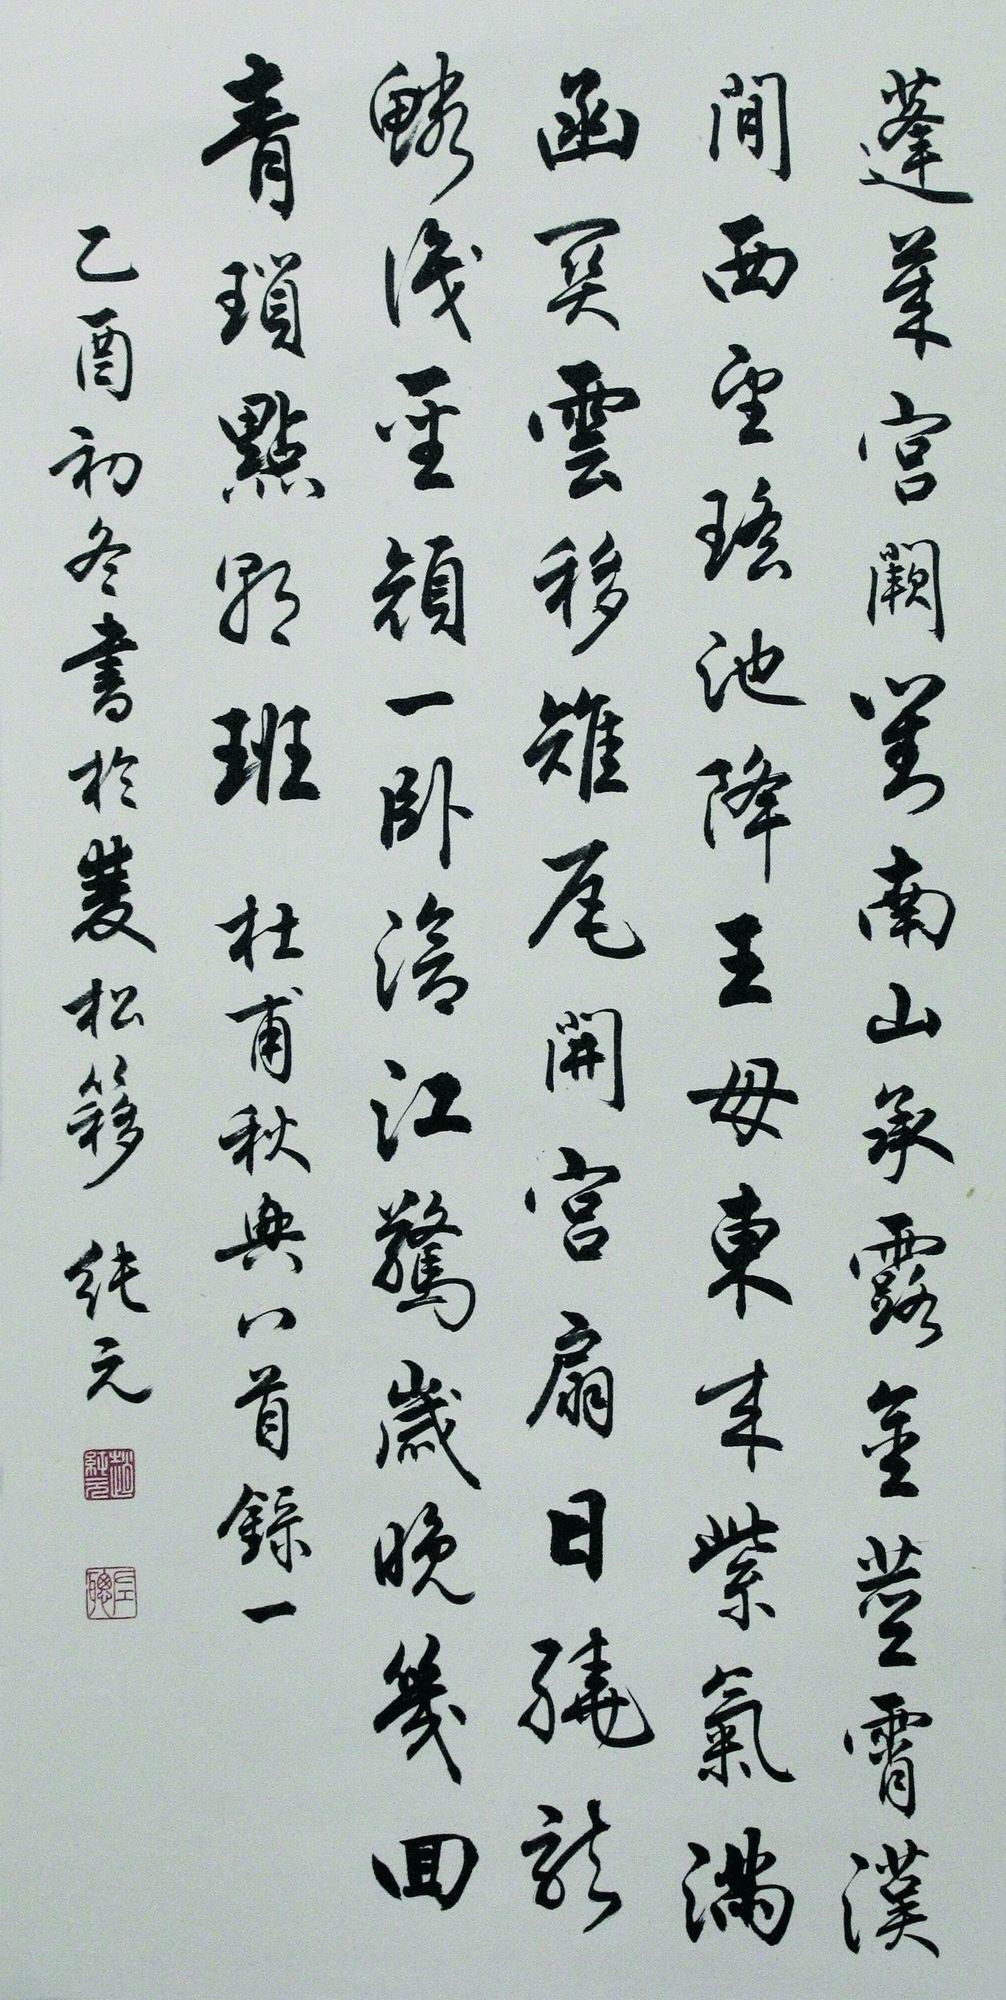 蓬萊宮闕對南山承露金莖霄漢
間西望瑤池降王母東來紫氣滿
函關雲移雉尾開宮扇日繞龍
鱗識聖顏一臥滄江驚歲晚幾回
青瑣點朝班 杜甫秋興八首錄一
乙酉初冬書於雙松簃 純元
趙純元